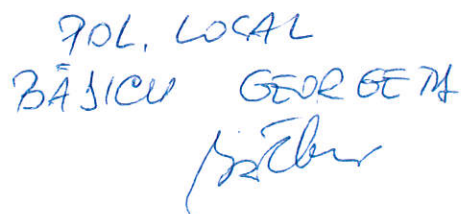 POL. LOCAL
BĂSICU GEORGETA